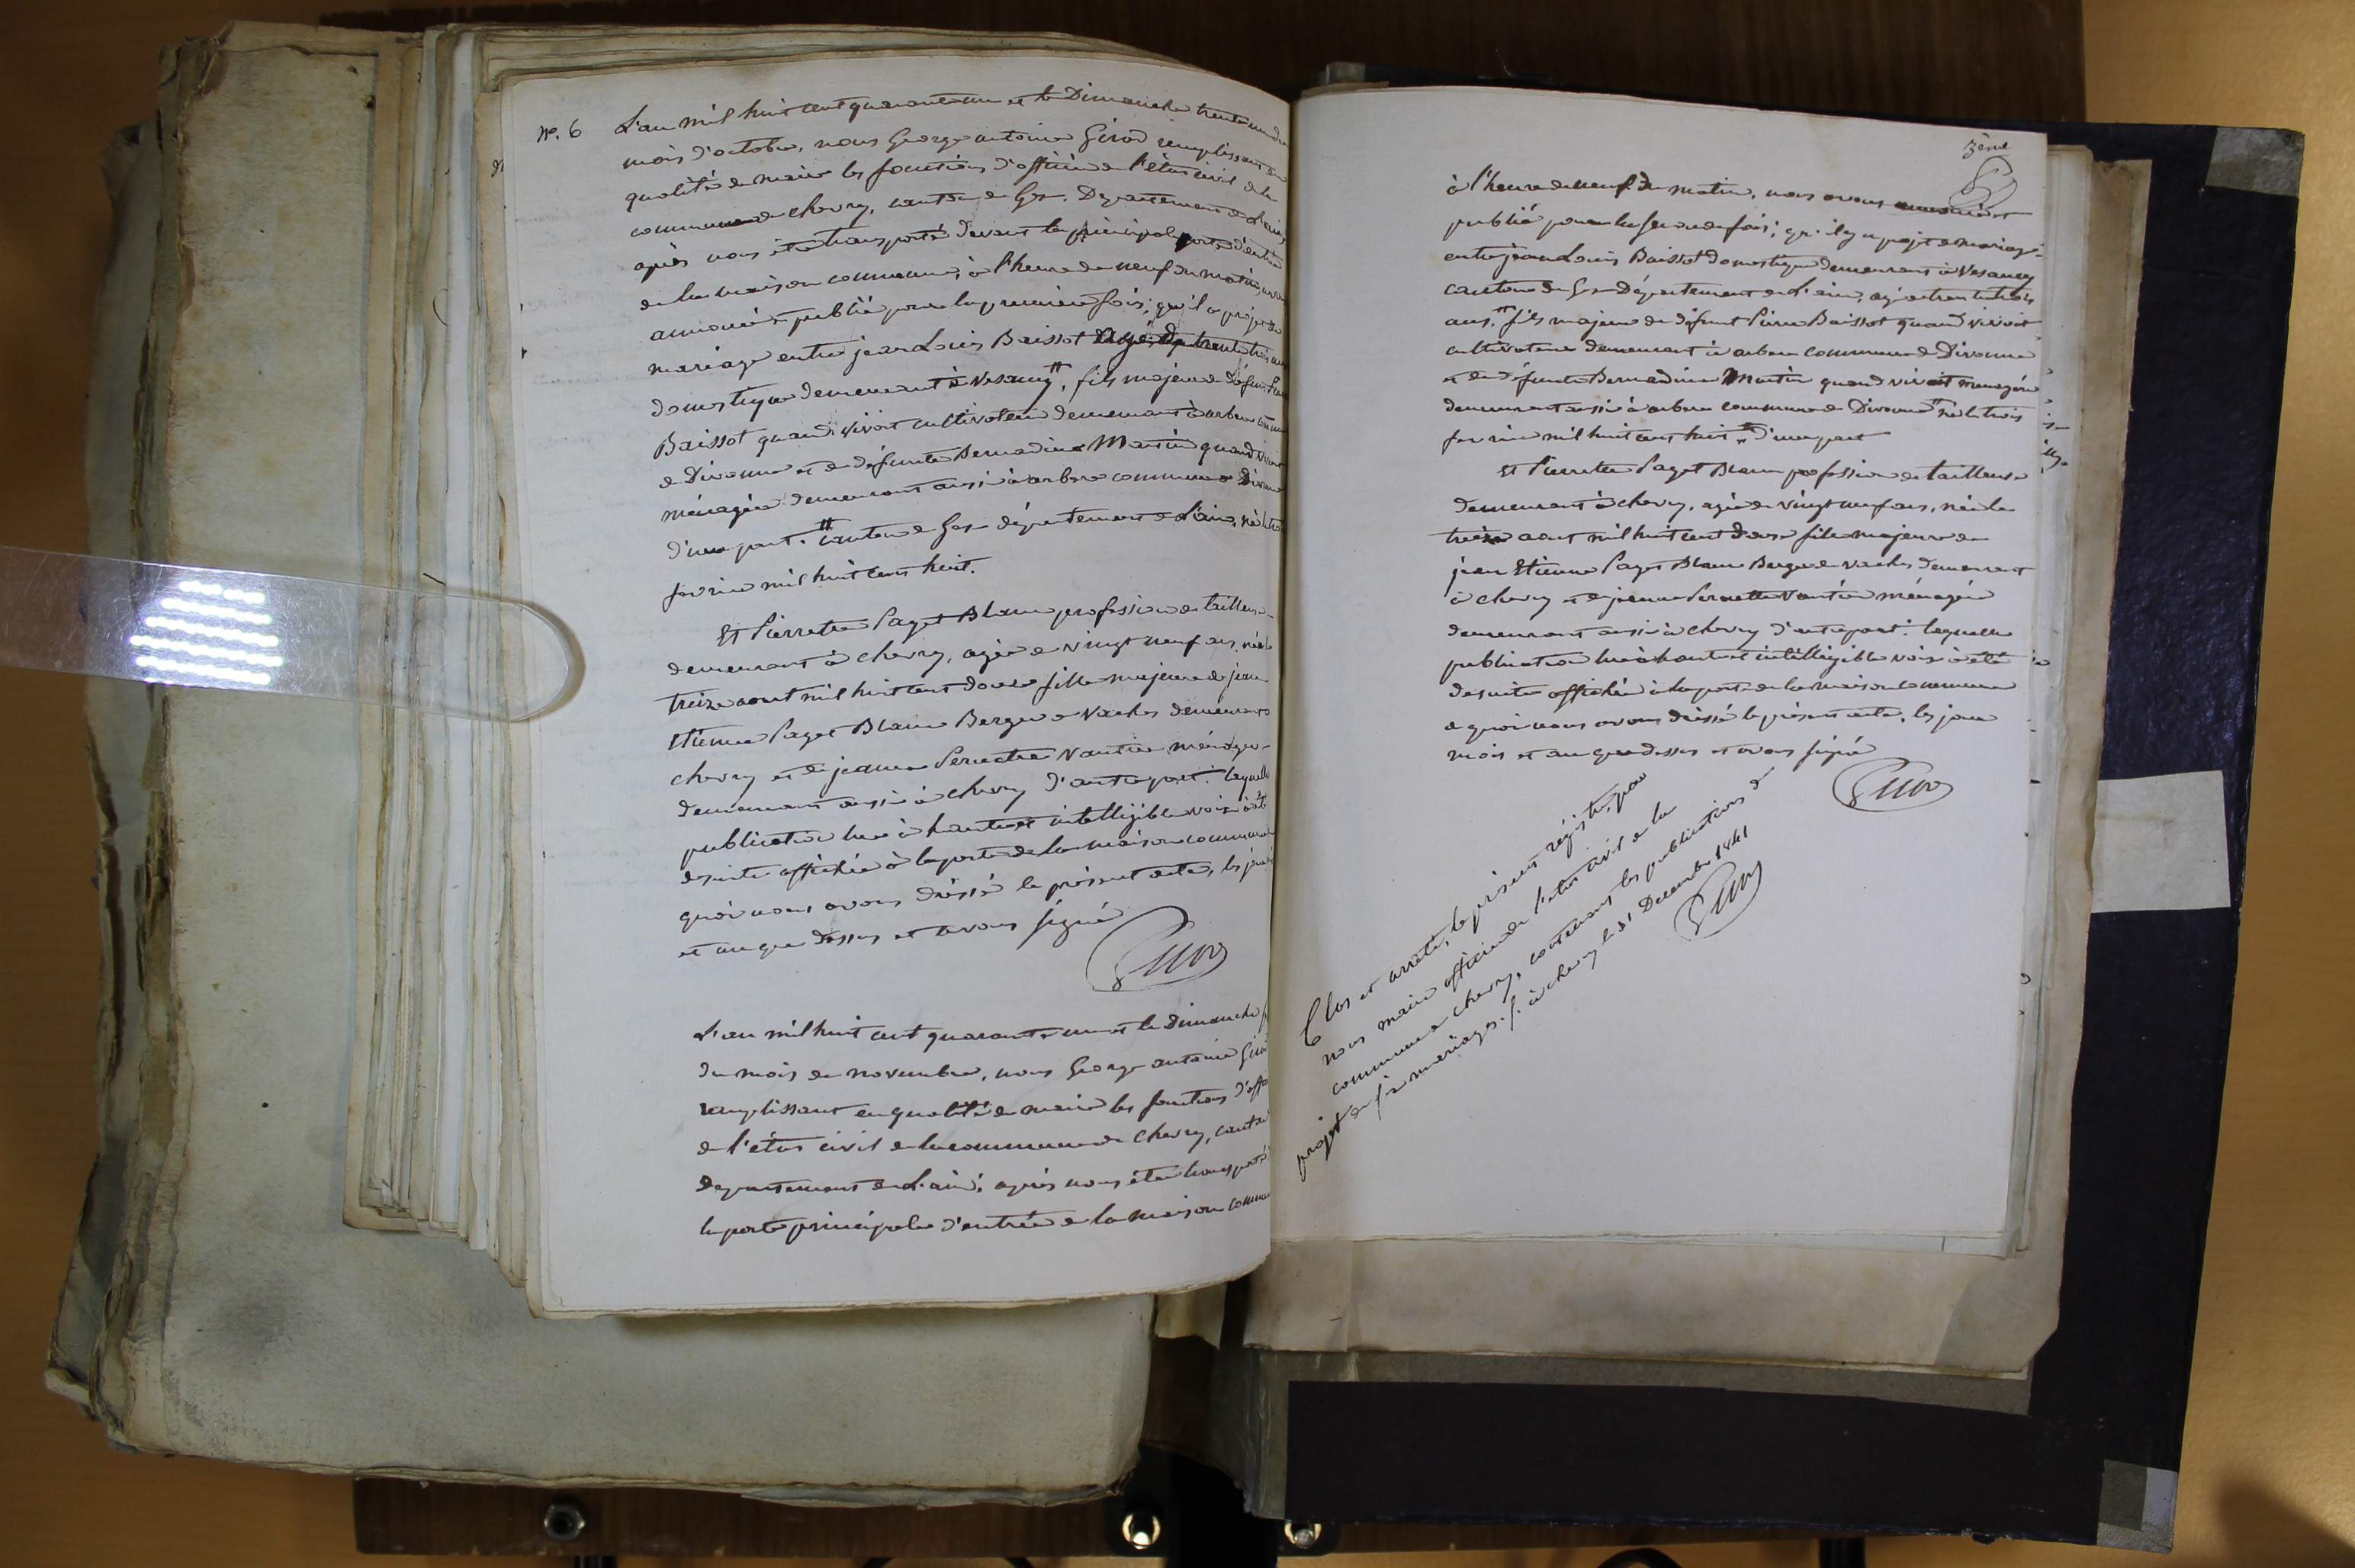 N°. 6
L'an mil huit cent quarante un et le Dimanche trente un du
mois d'octobre, nous George antoine Girod remplissant en
qualité de maire les fonctions d'officier de l'état civil de la
commune de chevry, canton de Gex, Département de L'ain
après nous être transporté devant la principale porte d'entrée
de la maison commune, à l'heure de neuf du matin, avons
annoncé et publié pour la premiere fois; qu'il a projet de
mariage entre jean Louis Baissot agé de trente trois ans
domestique demeurant à Vesancy, fils majeur de défunt
Baissot quand vivoit cultivateur demeurant à arbere
de Divonne et de défunte Bernadine Martin quand vivoit
ménagère demeurant aussi à arbere commune Divonne
d'une part. canton de Gex département de L'ain, né le trois
fevrier mil huit cent huit.
Et Pierrette Paget Blanc profession de tailleuse
demeurant à chevry, agée de vingt neuf ans, née le
treize aout mil huit cent douze fille majeure de jean
Etienne Paget Blanc Berger de vaches demeurant
chevry et de jeanne Pernette Vautier ménagère
demeurant aussi à chevry d'autre part. laquelle
publication lue à haute et intelligible voix à été
de suite affichée à la porte de la maison commune
quoi nous avons dréssé le présent acte, les jour
et an que dessus et avons signé
Girod
L'an mil huit cent quarante un et le dimanche
du mois de novembre, nous George antoine Girod
remplissant en qualité de maire les fonctions d'
de l'état civil de la commune de chevry, canton
departement de L'ain; après nous être transporté
la porte principale d'entrée de la maison commune
3ème
à l'heure de neuf du matin, nous avons
publié pour la seconde fois; qu'il y a projet de mariage
entre jean Louis Baissot domestique demeurant à Vesancy
canton de Gex Département de L'ain, agé de trente trois
ans, fils majeur de défunt Pierre Baissot quand vivoit
cultivateur demeurant à arbere commune de Divonne
et de défunte Bernadine Martin quand vivoit ménagère
demeurant aussi à arbere commune de Divonne né le trois
fevrier mil huit cent huit d'une part
Et Pierrette Paget Blanc profession de tailleuse
demeurant à chevry, agée de vingt neuf ans, née le
treize aout mil huit cent douze fille majeure de
jean Etienne Paget Blanc Berger de vaches demeurant
à chevry et de jeanne Pernette Vautier ménagère
demeurant aussi à chevry d'autre part. laquelle
publication lue à haute et intelligible voix à été
de suite affichée à la porte de la maison commune
de quoi nous avons dréssé le présent acte, les jour
mois et an que dessus et avons signé
Girod
Clos et arrêté, le présent régistre, par
nous maire officier de l'état civil de la
commune de chevry, contenant les publications de
projet de six mariages. à chevry le 31 Decembre 1841
Girod